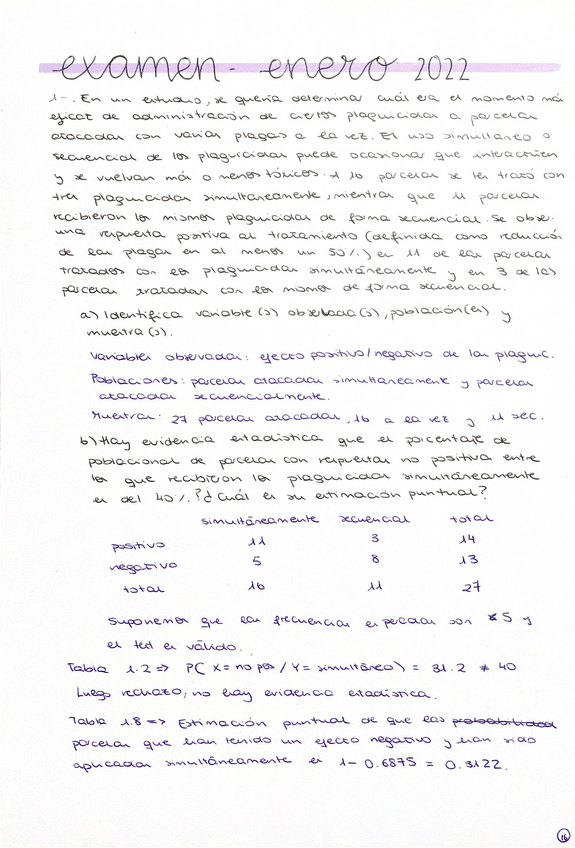 examen - enero 2022
1-. En un estudio, se quería determinar cuál era el momento más
eficaz de administración de ciertos plaguicidas a parcelas
atacadas con varias plagas a la vez. El uso simultáneo o
secuencial de los plaguicidas puede ocasionar que interactúen
y se vuelvan más o menos tóxicos. A 16 parcelas se les trató con
tres plaguicidas simultáneamente, mientras que 11 parcelas
recibieron los mismos plaguicidas de forma secuencial. Se obser-
una respuesta positiva al tratamiento (definida como reducción
de las plagas en al menos un 50%) en 11 de las parcelas
tratadas con los plaguicidas simultáneamente y en 3 de las
parcelas tratadas con los mismos de forma secuencial.
a) Identifica variable(s) observada(s), población(es) y
muestra(s).
Variables observadas: efecto positivo/negativo de los plaguic.
Poblaciones: parcelas atacadas simultaneamente y parcelas
atacadas secuencialmente.
Muestras: 27 parcelas atacadas, 16 a la vez y 11 sec.
b) Hay evidencia estadística que el porcentaje de
poblacional de parcelas con respuestas no positiva entre
los que recibieron los plaguicidas simultáneamente
es del 40%? ¿Cuál es su estimación puntual?
simultáneamente secuencial total
positivo 11 3 14
negativo 5 8 13
total 16 11 27
Suponemos que las frecuencias esperadas son 5 y
el test es válido.
Tabla 1.2 => P( X = no pos / Y = simultáneo) = 31.2 ≠ 40
Luego rechazo, no hay evidencia estadística.
Tabla 1.8 => Estimación puntual de que las probabilidad
parcelas que han tenido un efecto negativo y han sido
aplicadas simultáneamente es 1 - 0.6875 = 0.3122.
16